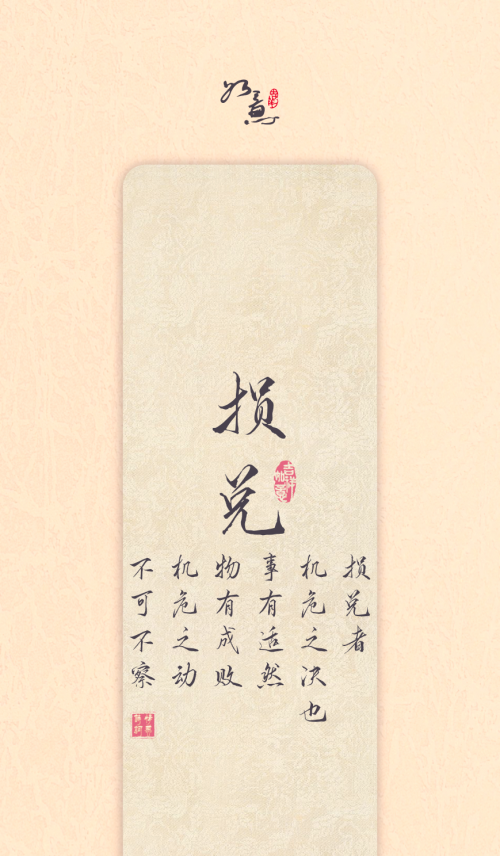 如意
损
兑
吉祥如意
损兑者
机危之决也
事有适然
物有成败
机危之动
不可不察